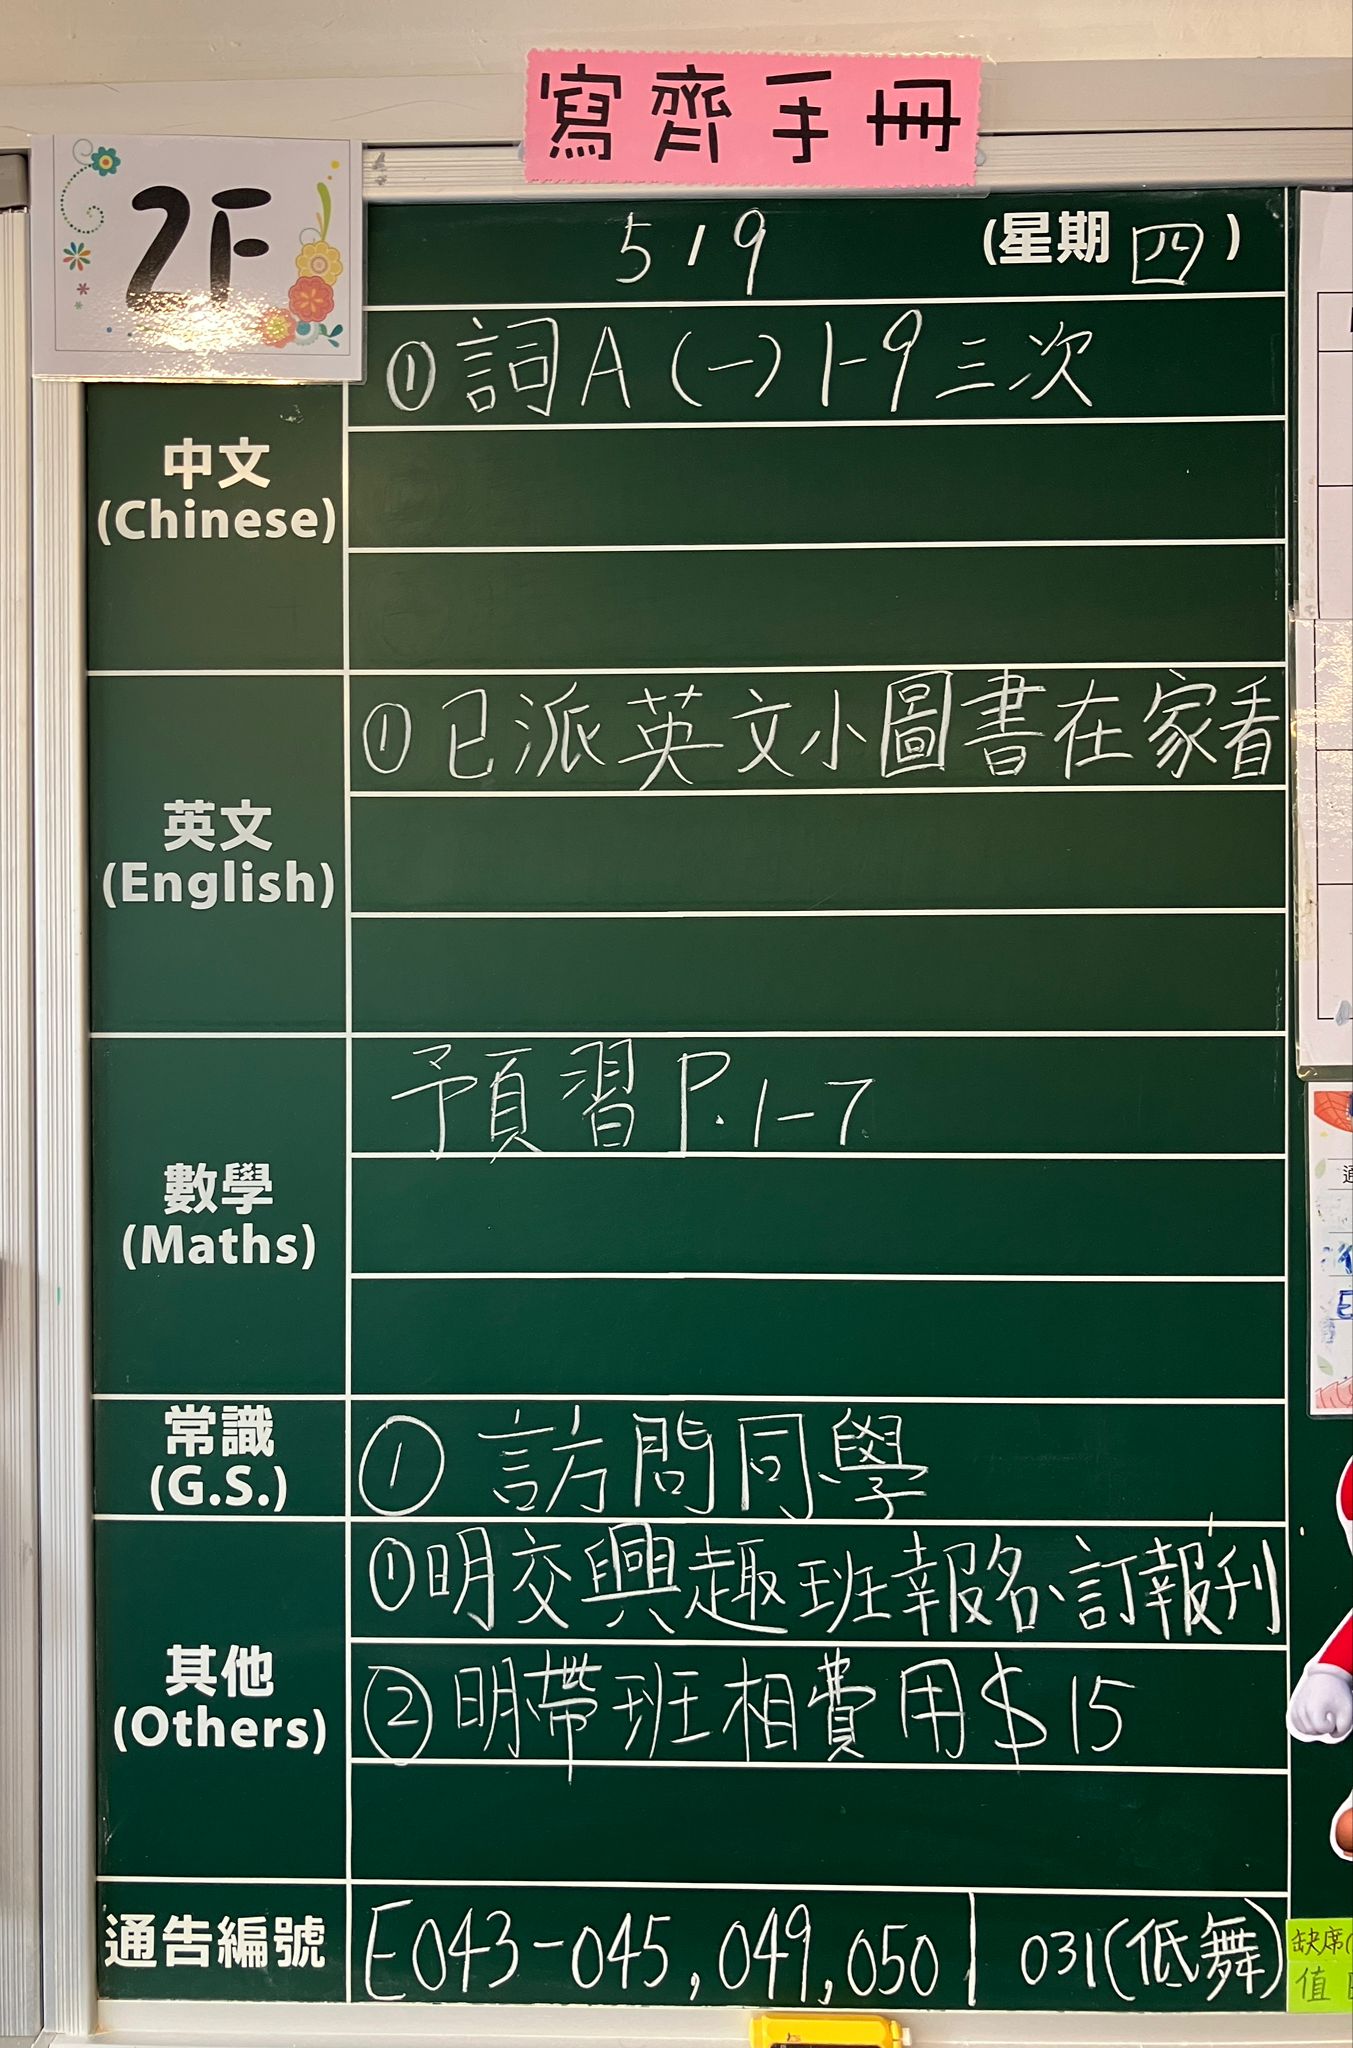 寫齊手冊
2F
5/9 (星期四)
①詞A(一)1-9三次
中文
(Chinese)
①已派英文小圖書在家看
英文
(English)
預習P.1-7
數學
(Maths)
常識
(G.S.)
①訪問同學
①明交興趣班報名、訂報刊
其他
(Others)
②明帶班相費用$15
通告編號
E043-045,049,050| 031(低舞)
缺席(
值